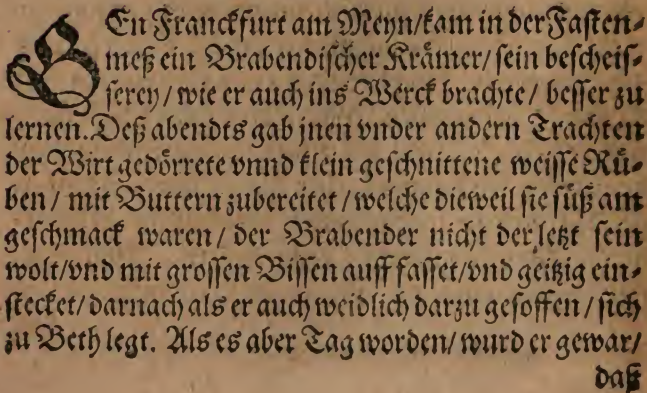 GEn Franckfurt am Meyn/kam in der Fasten⸗
meß ein Brabendischer Krämer/ sein bescheis⸗
serey/ wie er auch ins Werck brachte/ besser zu
lernen. Deß abendts gab jnen vnder andern Trachten
der Wirt gedörrete vnnd klein geschnittene weisse Rü⸗
ben/ mit Buttern zubereitet/ welche dieweil sie süß am
geschmack waren/ der Brabender nicht der letzt sein
wolt/vnd mit grossen Bissen auff fasset/vnd geitzig ein⸗
stecket/ darnach als er auch weidlich darzu gesoffen/ sich
zu Beth legt. Als es aber Tag worden/ wurd er gewar/
daß